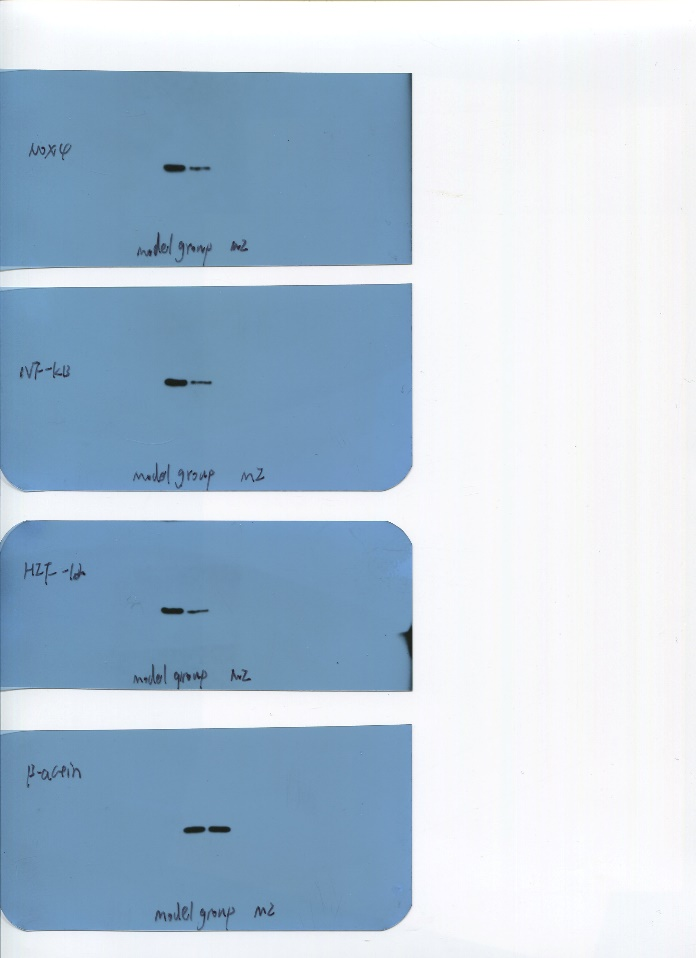 NOX4
model group M2
NF-κB
model group M2
HIF-1α
model group M2
β-actin
model group M2